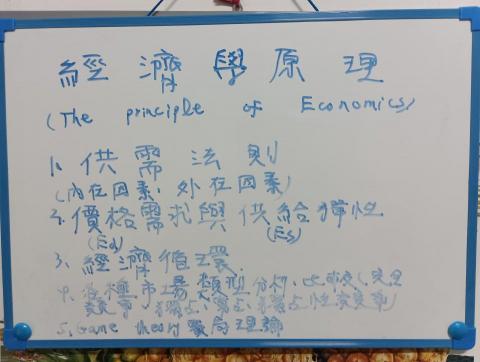 經濟學原理
(The principle of Economics)
1. 供需法則
(內在因素, 外在因素)
2. 價格需求與供給彈性
(Ed) (Es)
3. 經濟循環
4. 各種市場類型分析、比較(完全
競爭、獨占、寡占、獨占性競爭)
5. Game theory 賽局理論